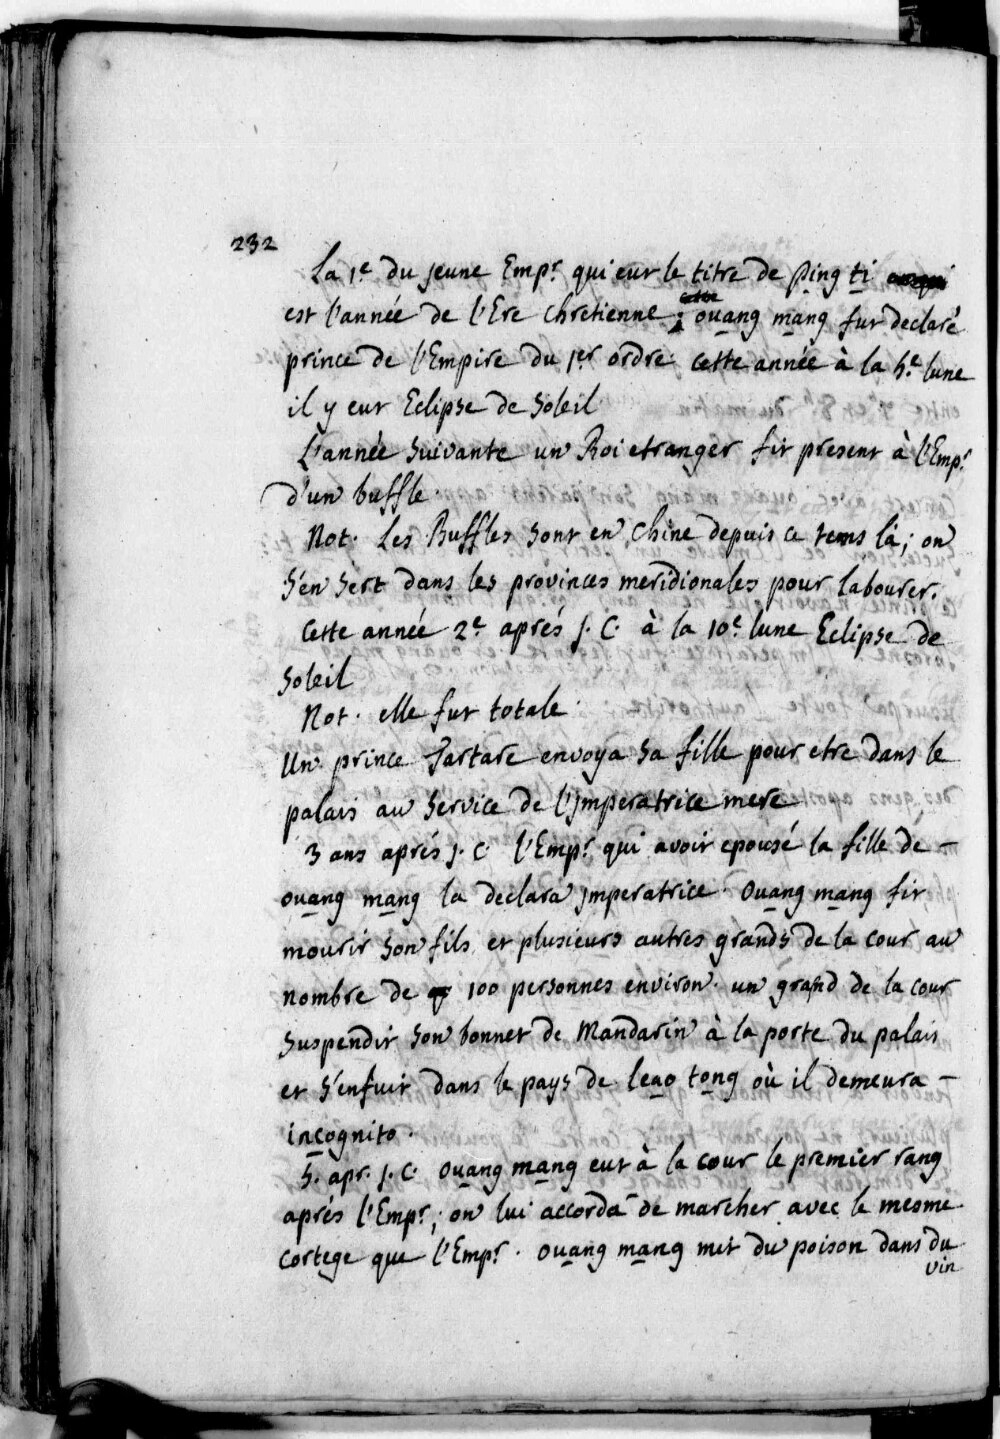 232
La 1e du jeune Empr qui eut le titre de Ping ti
est l'année de l'Ere chretienne; ouang mang fut declaré
prince de l'Empire du 1er ordre. cette année à la 5.e lune
il y eut Eclipse de Soleil
L'année Suivante un Roi etranger fit present à l'Empr
d'un buffle
Not. Les Buffles Sont en Chine depuis ce tems là; on
S'en Sert dans les provinces meridionales pour labourer.
Cette année 2e aprés J. C. à la 10e lune Eclipse de
Soleil
Not. elle fut totale.
Un prince Tartare envoya Sa fille pour etre dans le
palais au Service de l'jmperatrice mere
3 ans aprés J. C. l'Empr qui avoit epousé la fille de –
ouang mang la declara jmperatrice. Ouang mang fit
mourir Son fils et plusieurs autres grands de la cour au
nombre de 100 personnes environ. un grand de la cour
Suspendit Son bonnet de Mandarin à la porte du palais
et S'enfuit dans le pays de leao tong où il demeura –
incognito.
5. apr. J. C. Ouang mang eut à la cour le premier rang
aprés l'Empr; on lui accorda de marcher avec le mesme
cortege que l'Empr. Ouang mang mit du poison dans du
vin